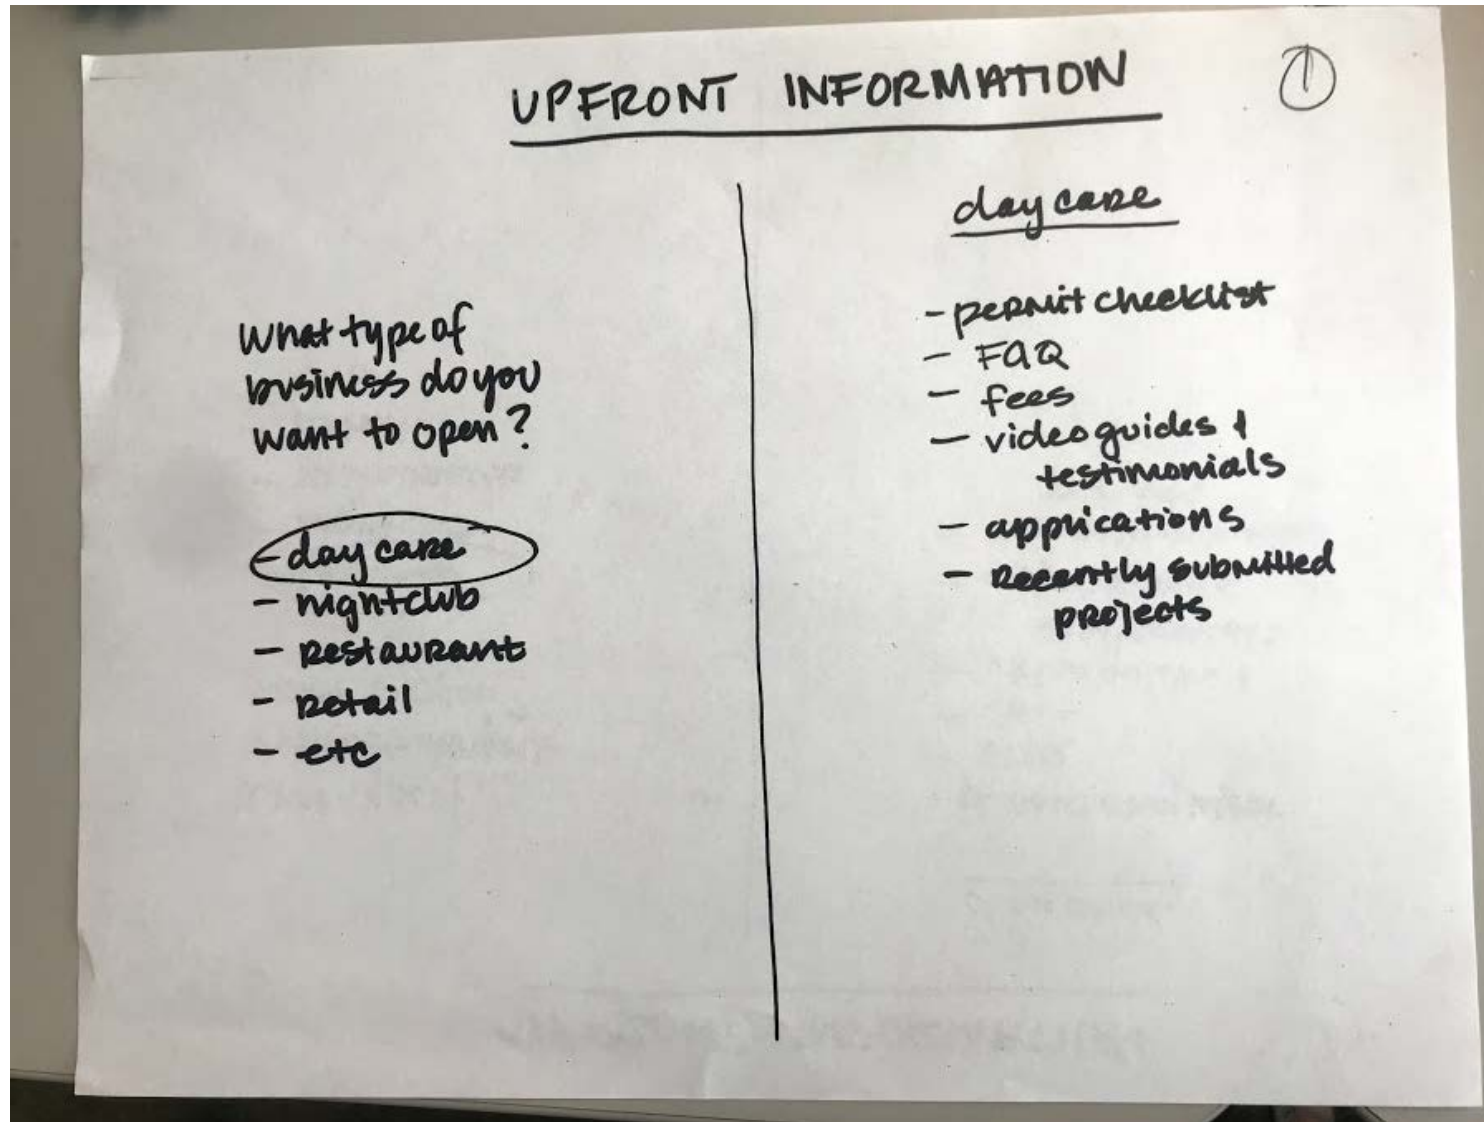 UPFRONT INFORMATION
1
What type of
business do you
want to open?
- day care
- nightclub
- Restaurant
- Retail
- etc
day care
- permit checklist
- FAQ
- fees
- video guides &
testimonials
- applications
- Recently submitted
projects